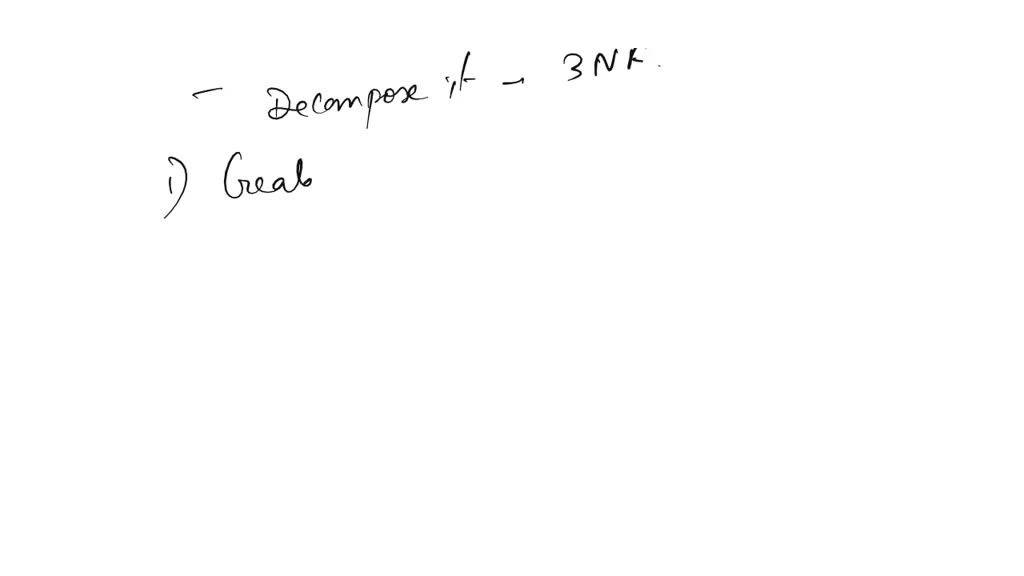 - Decompose it - 3NF.
1) Creat